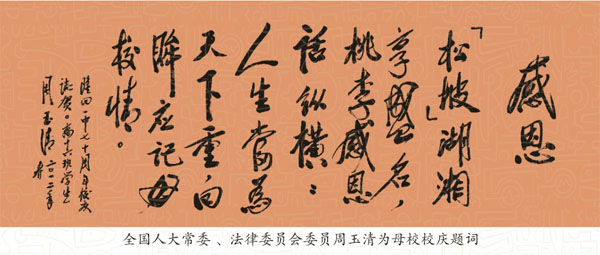 感恩
「松坡」湖湘
享盛名，
桃李感恩
話縱橫：
人生當為
天下重，回
眸应记母
校情。
隆回一中七十周年校庆
志贺。高十六班学生
周玉清 二〇一二年
全国人大常委、法律委员会委员周玉清为母校校庆题词